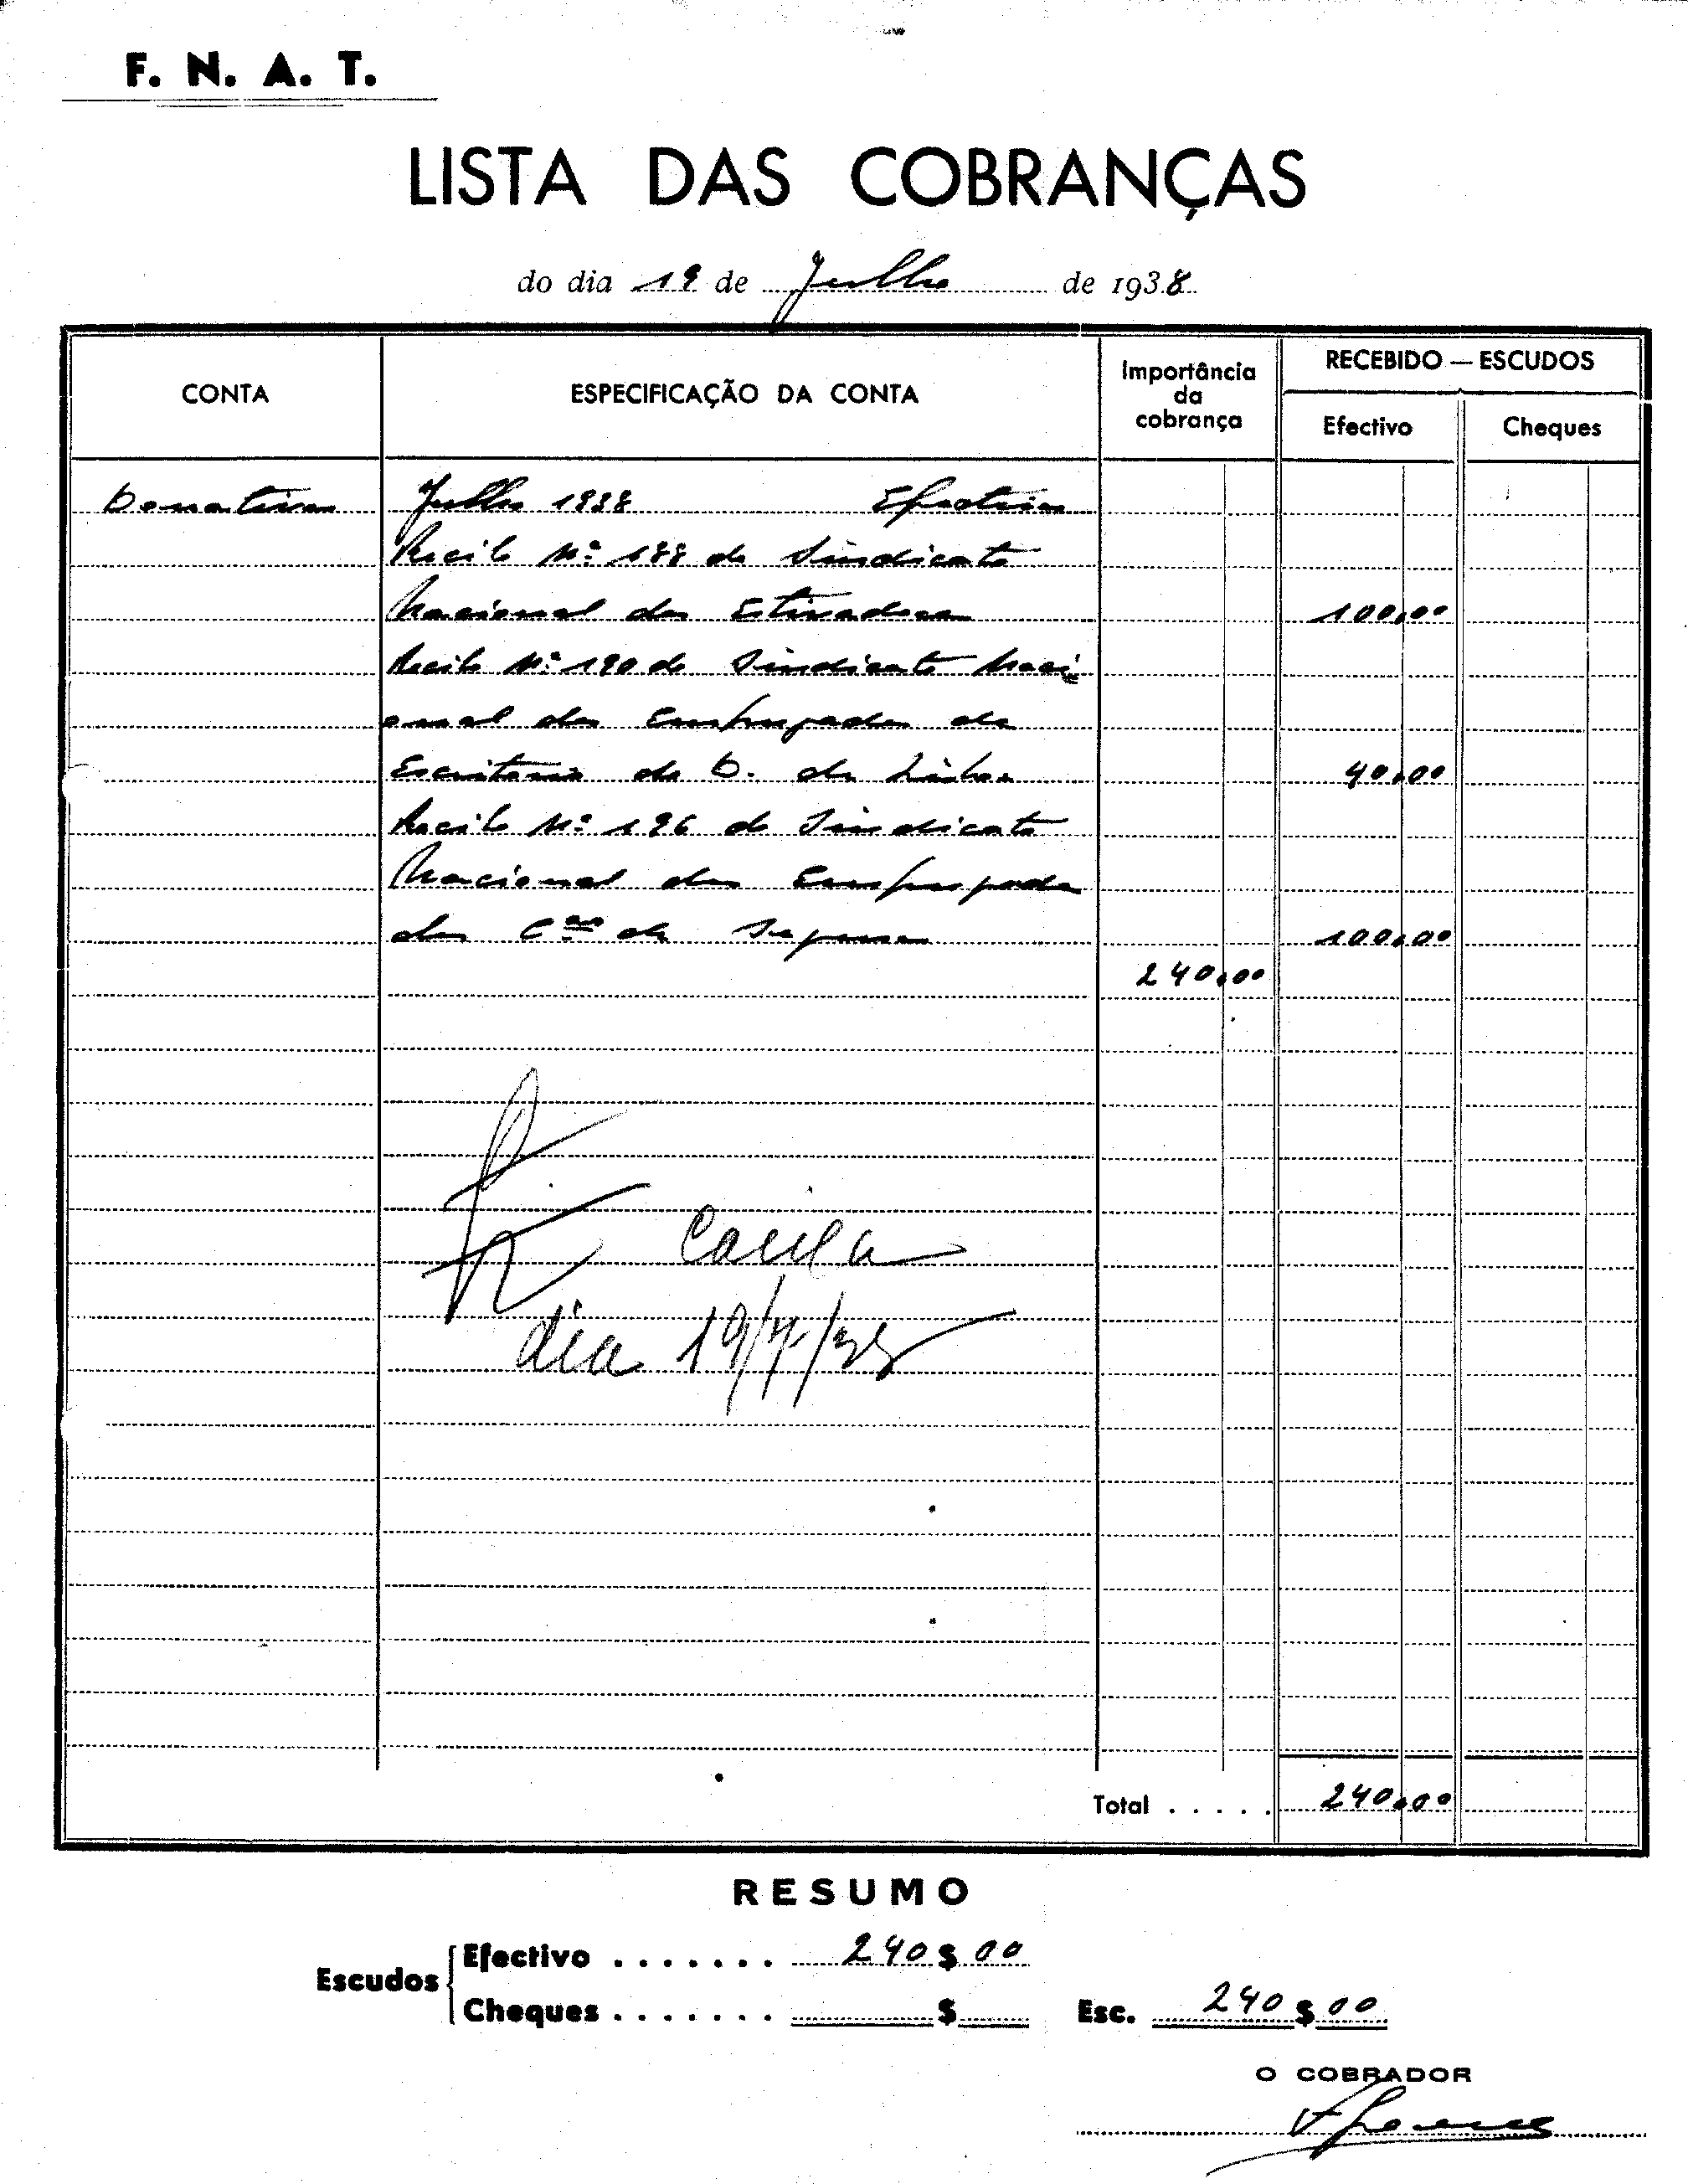 F. N. A. T.
LISTA DAS COBRANÇAS
do dia 19 de Julho de 1938
CONTA
ESPECIFICAÇÃO DA CONTA
Importância
da
cobrança
RECEBIDO — ESCUDOS
Efectivo
Cheques
Donativos Julho 1938 Efectivos
Recibo Nº 188 do Sindicato
Nacional dos Estivadores 100,00
Recibo Nº 190 do Sindicato Naci
onal dos Empregados de
Escritorio do D. de Lisboa 40,00
Recibo Nº 196 do Sindicato
Nacional dos Empregados
das Cas de Seguros 100,00
240,00
Caixa
dia 19/7/38
Total . . . . . 240,00
RESUMO
Escudos
Efectivo . . . . . . . 240$00
Cheques . . . . . . . $
Esc. 240$00
O COBRADOR